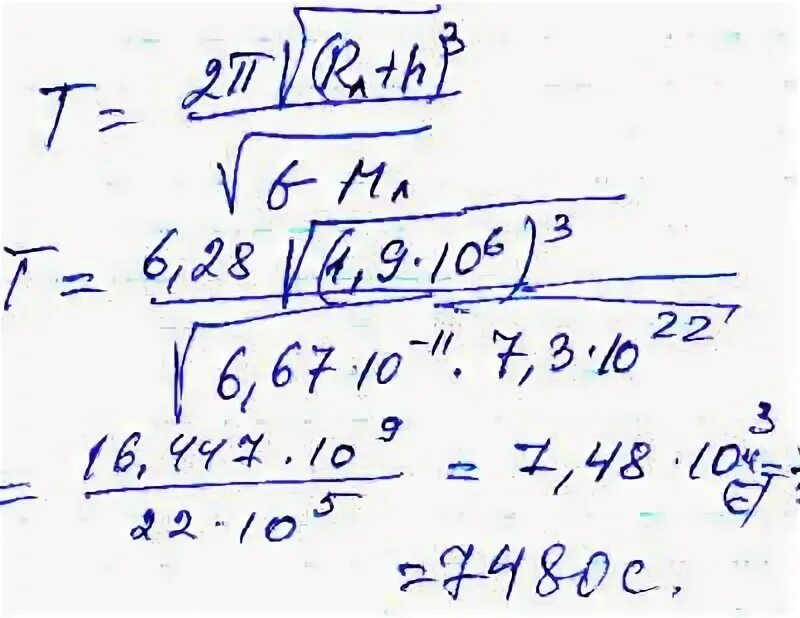 T = 2π√(Rл+h)³ / √G Mл
T = 6,28 √(1,9·10⁶)³ / √6,67·10⁻¹¹ · 7,3·10²²
= 16,447·10⁹ / 22·10⁵ = 7,48·10³
= 7480 с.